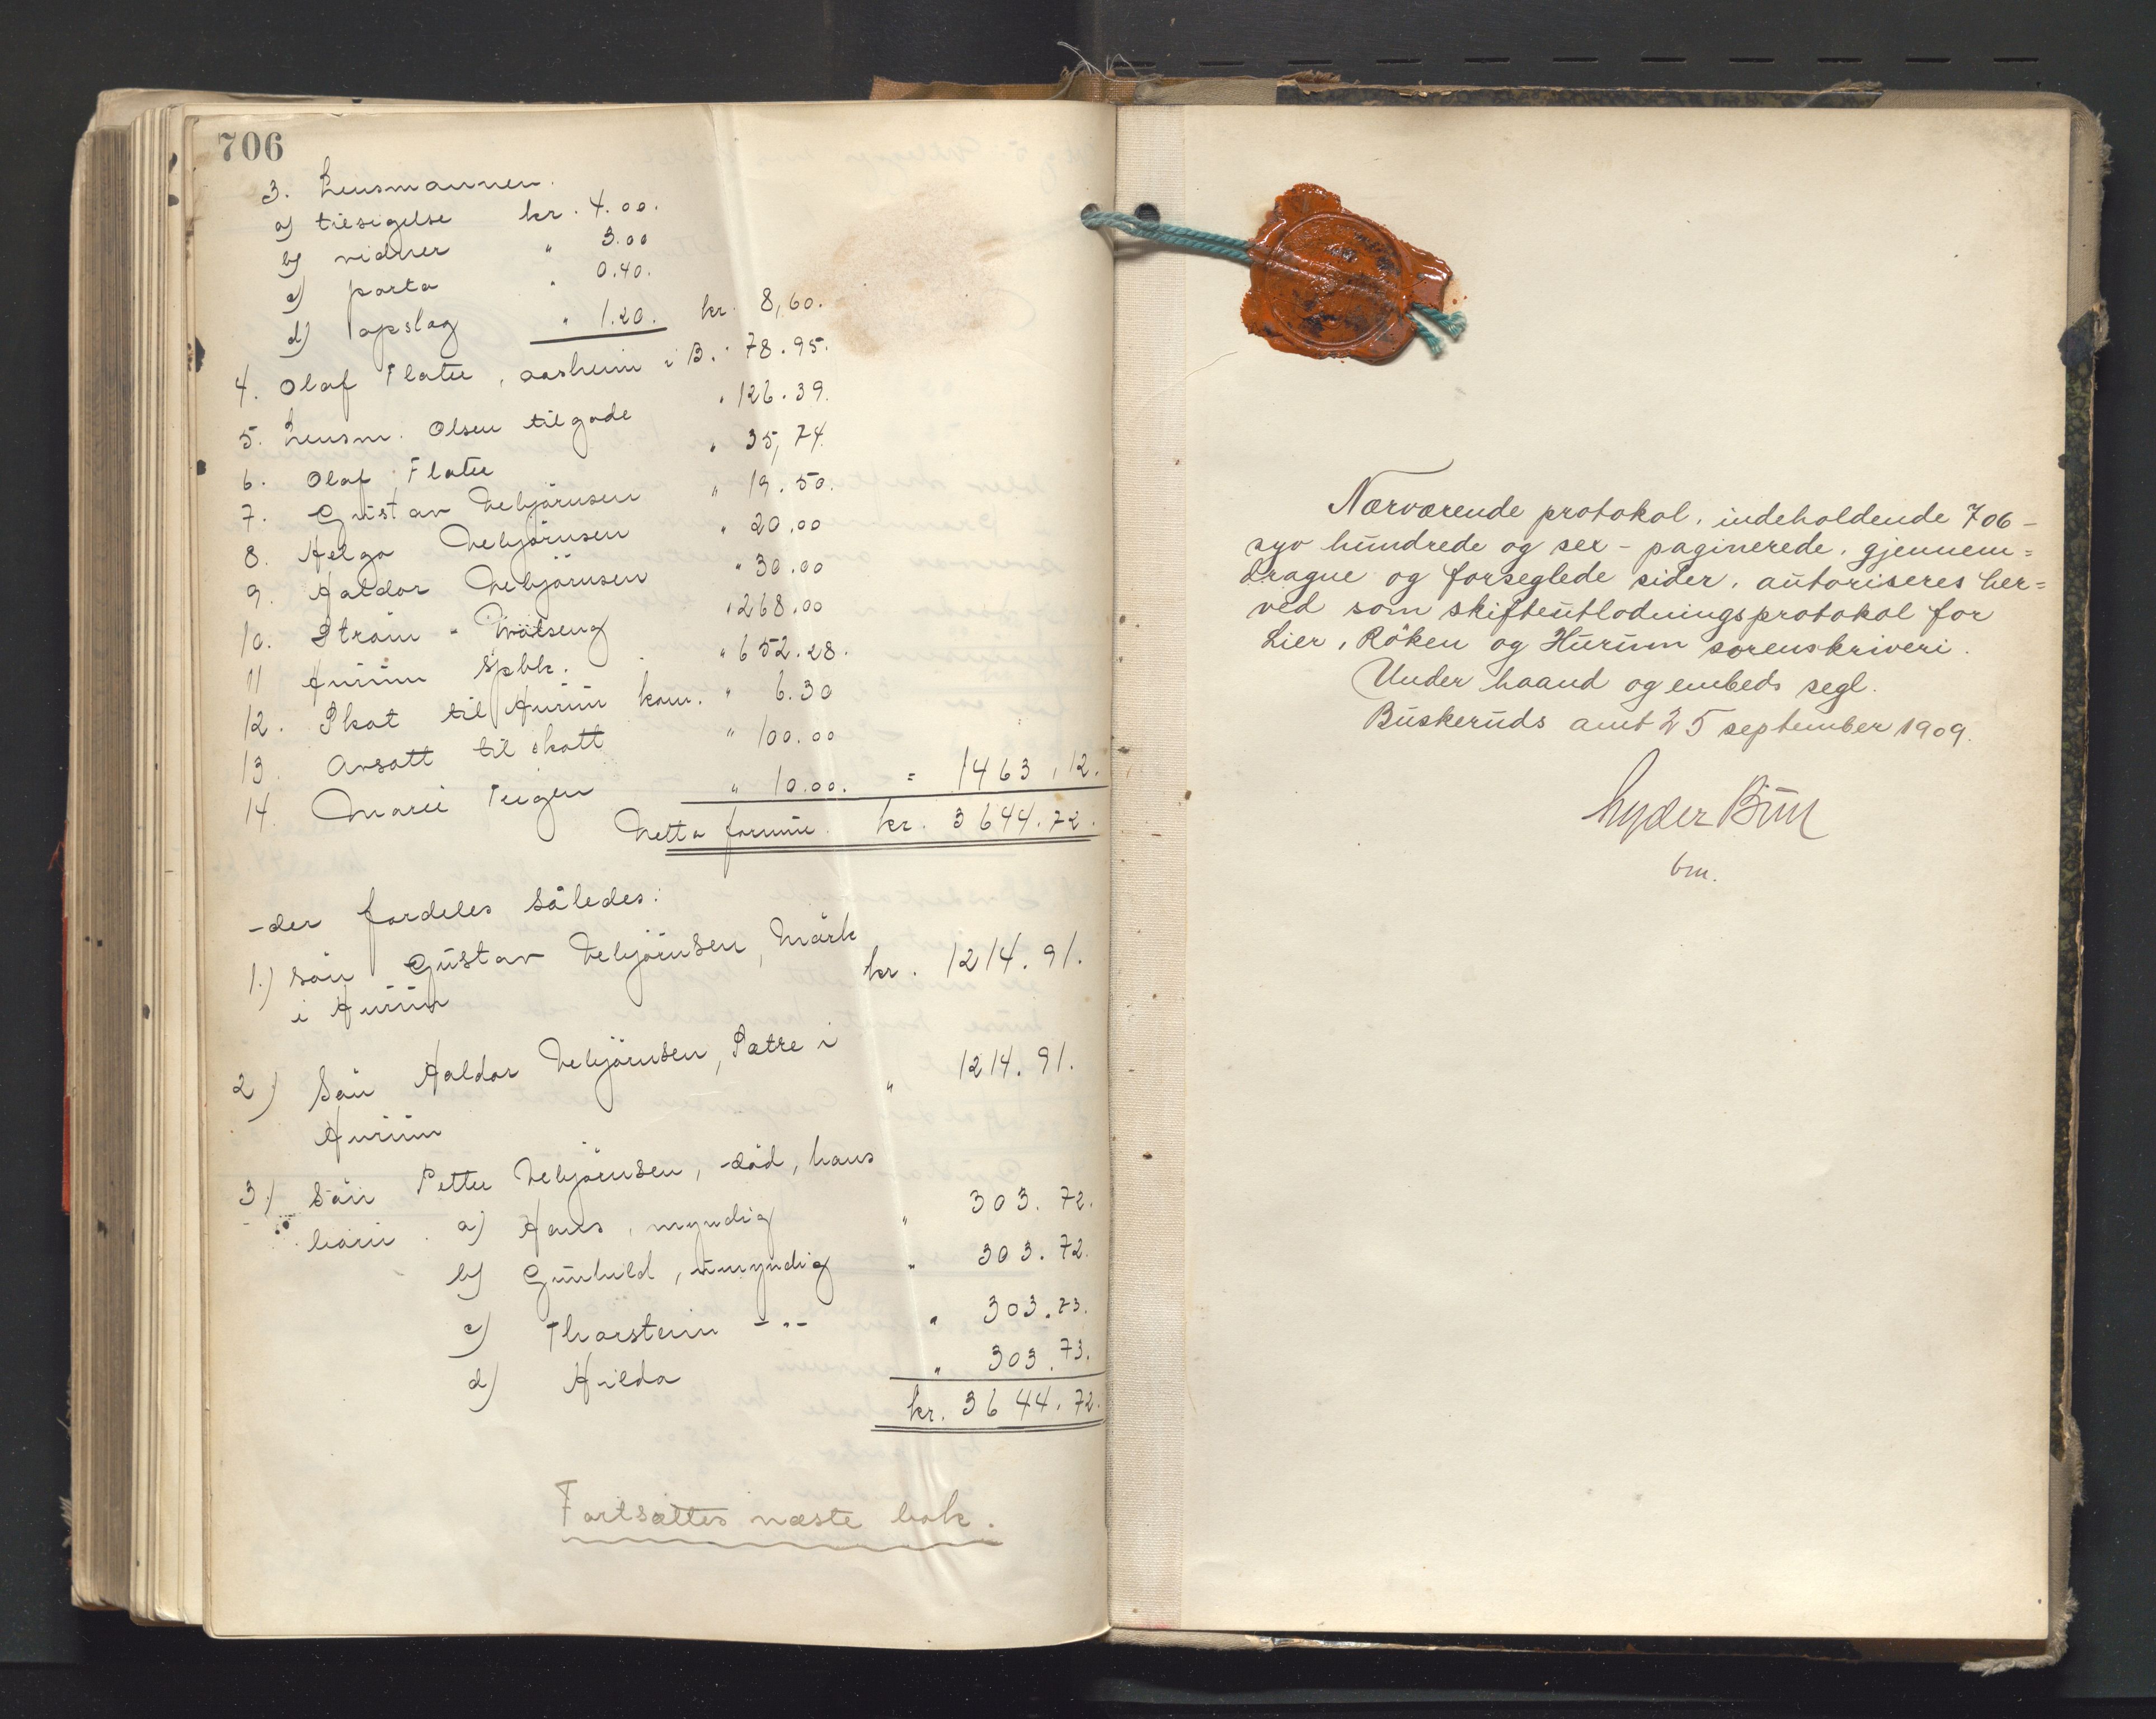 706
3. Lensmannen.
a) tilsigelse kr. 4.00.
b) vidner " 3.00
c) porto " 0.40.
d) opslag " 1.20. kr. 8,60.
4. Olaf Flatee, aasheim i B. " 78.95.
5. Lensm. Olsen tilgode " 126.39.
6. Olaf Flatee " 35,74.
7. Gustav Vebjörnsen " 19.50.
8. Helga Vebjörnsen " 20.00
9. Haldor Vebjörnsen " 30.00
10. Ström - " 268.00
11 Hurum Spbk. " 652.28.
12. Skat til Hurum kom. " 6.30
13. Avsatt til skatt " 100.00
14. Marie Teigen " 10.00. = 1463,12.
Netto formue. kr. 3644.72.
-der fordeles således:
1.) sön Gustav Vebjörnsen, Mörk
i Hurum kr. 1214.91.
2) Sön Haldor Vebjörnsen, Sætre i
Hurum " 1214.91.
3.) Sön Petter Vebjörnsen, -död, hans
börn. a) Hans, myndig " 303.72.
b) Gunhild, umyndig " 303.72.
c) Thorstein -"- " 303.73.
d) Hilda " 303.73.
kr. 3644.72.
Fortsættes næste bok.
Nærværende protokol, indeholdende 706 -
syv hundrede og sex - paginerede, gjennem=
dragne og forseglede sider, autoriseres her=
ved som skifteutlodningsprotokol for
Lier, Röken og Hurum sorenskriveri.
Under haand og embeds segl.
Buskeruds amt 25 september 1909.
Lyder Brun
bm.